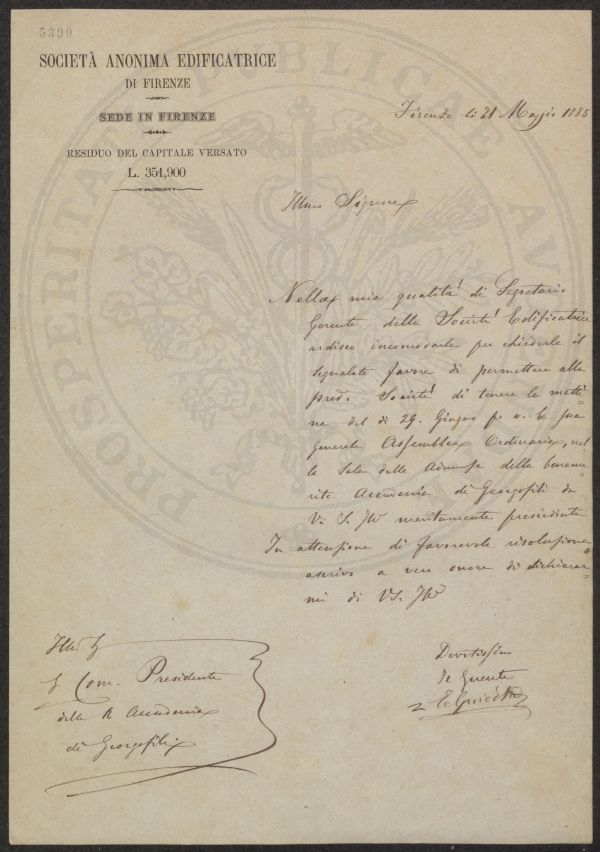 5390
SOCIETÀ ANONIMA EDIFICATRICE
DI FIRENZE
SEDE IN FIRENZE
RESIDUO DEL CAPITALE VERSATO
L. 351,900
Firenze li 21 Maggio 1885
Illmo Signore
Nella mia qualità di Segretario
Gerente della Società Edificatrice
ardisco incomodarla per chiederle il
segnalato favore di permettere alla
pred. Società di tenere la matti=
na del dì 29. Giugno p. v. la sua
generale Assemblea Ordinaria, nel
la Sala delle Adunanze della beneme
rita Accademia di Georgofili da
V. S. Illma meritamente presieduta
In attenzione di favorevole risoluzione
ascrivo a vero onore di dichiarar=
mi di VS. Illma
Devotissimo
Il Gerente
Illmo Sig
Com. Presidente
della R Accademia
di Georgofili
PROSPERITATI PUBLICAE AU